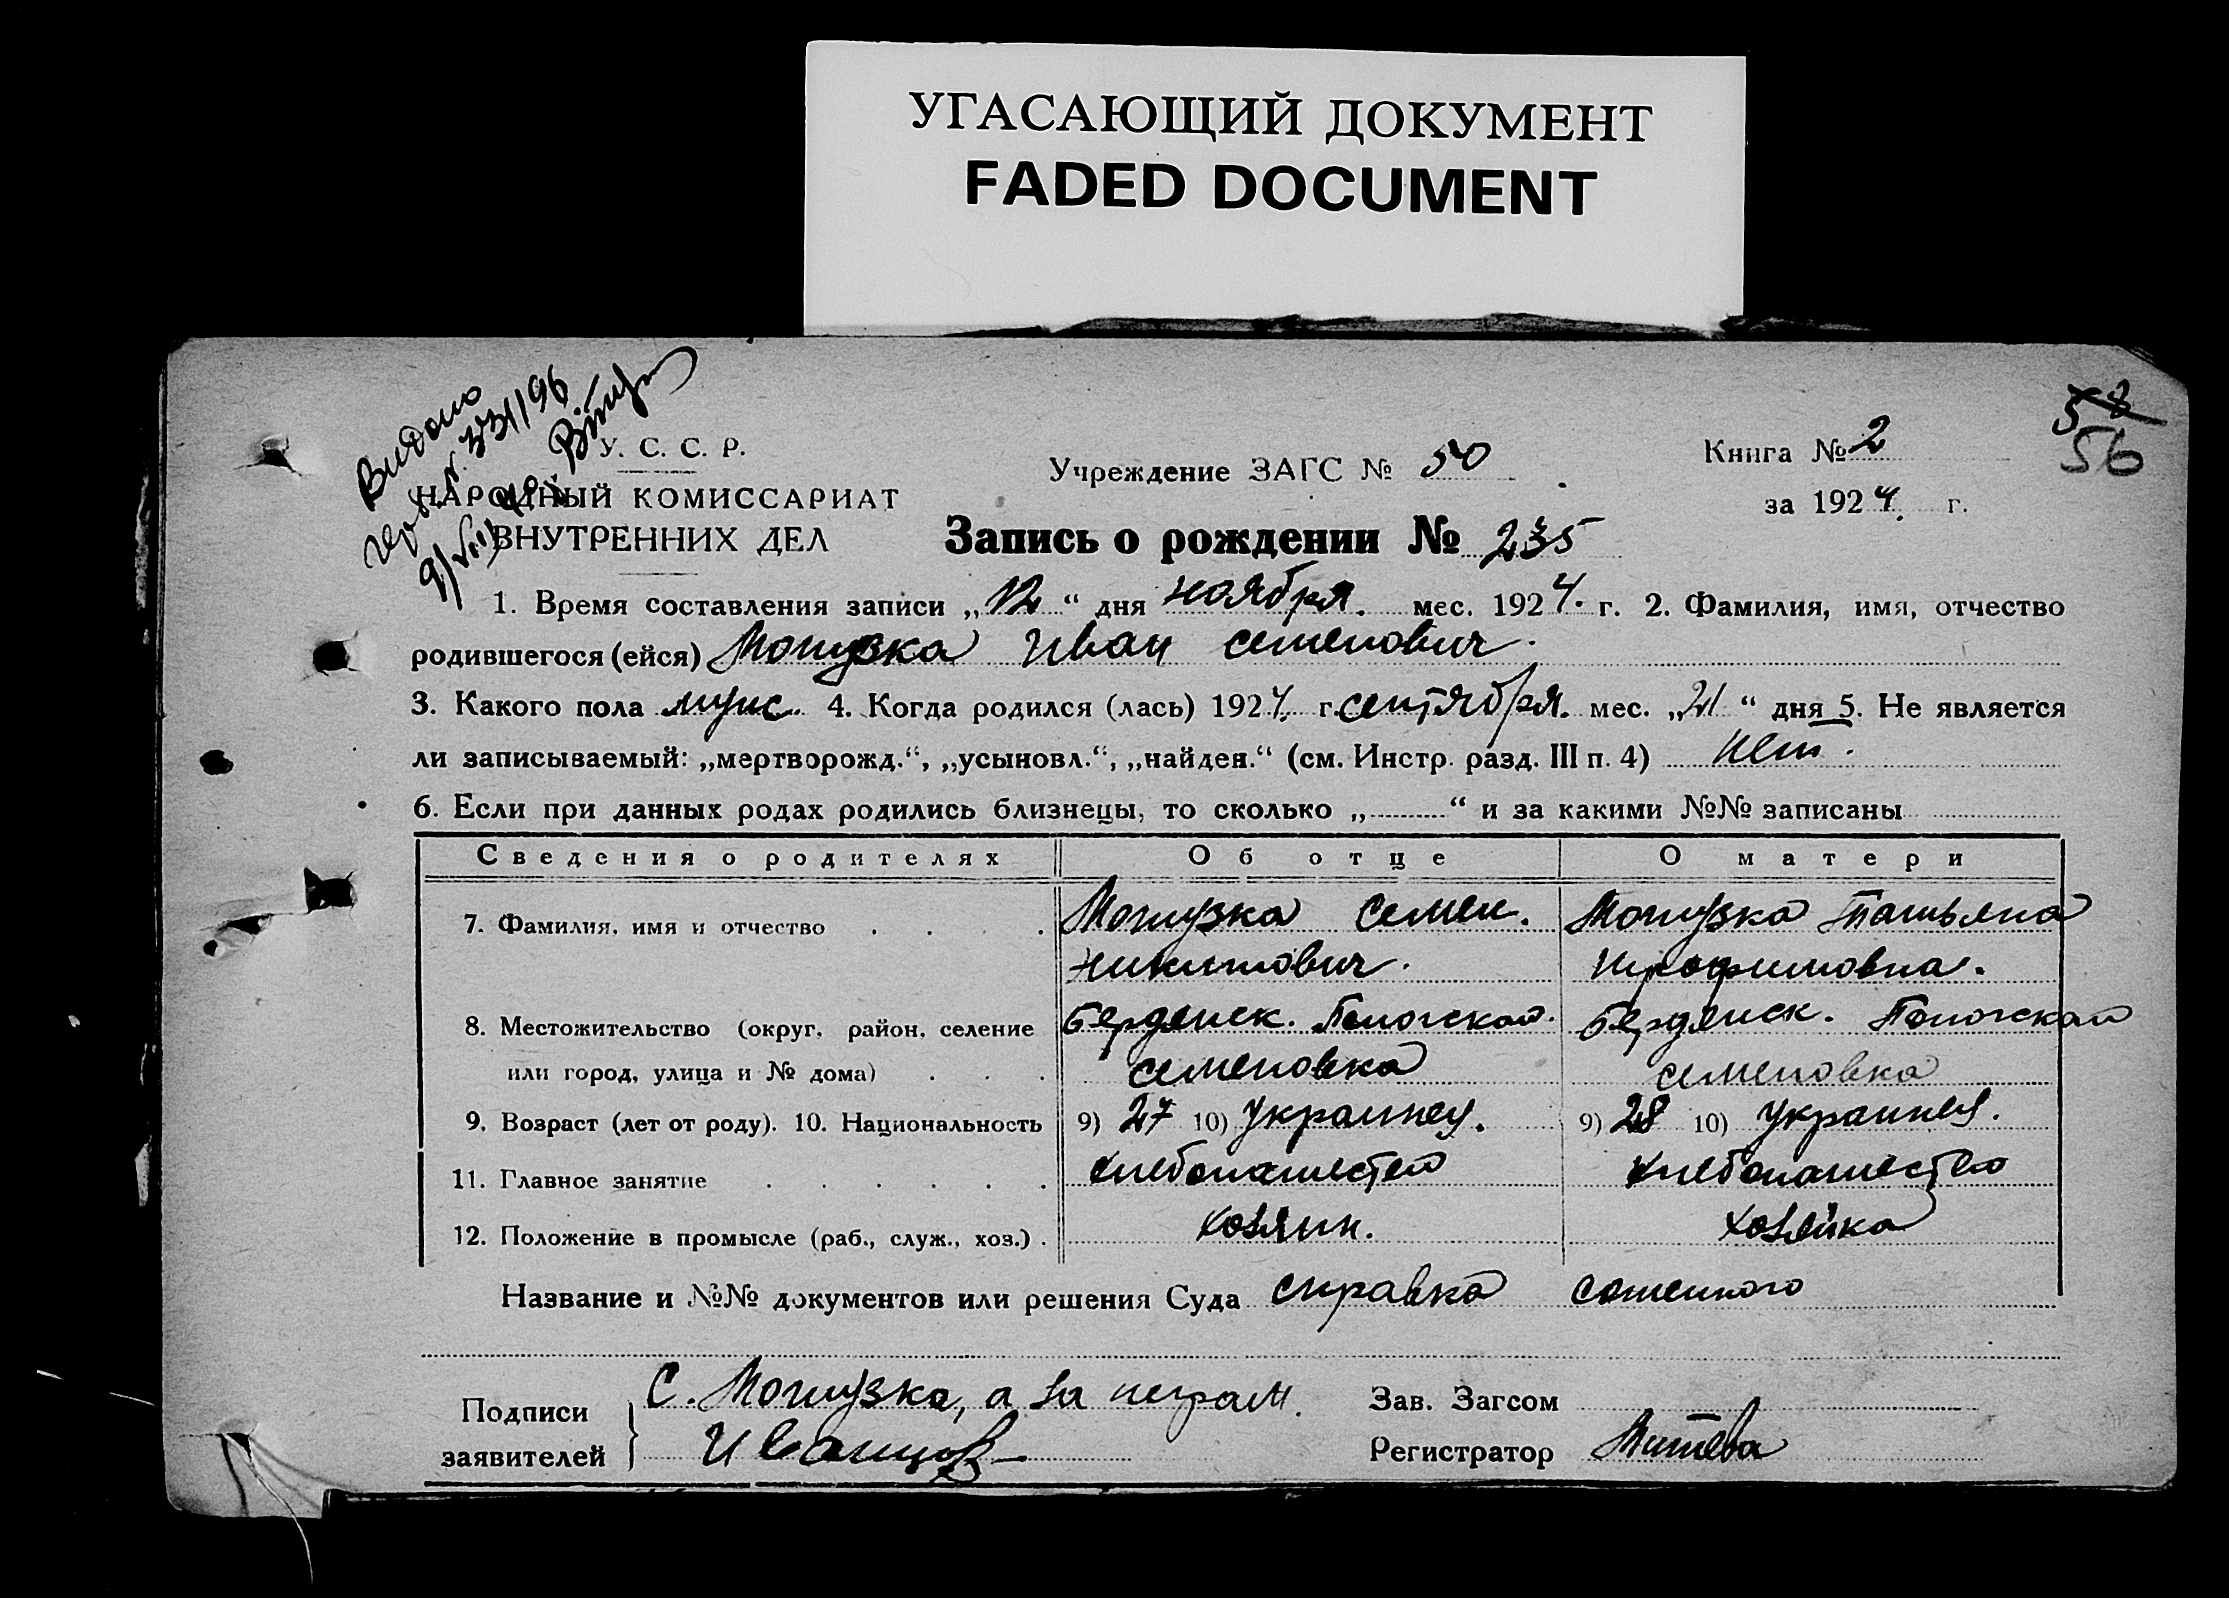 УГАСАЮЩИЙ ДОКУМЕНТ
FADED DOCUMENT
Видано
№ 331/96
58
56
У. С. С. Р.
НАРОДНЫЙ КОМИССАРИАТ
ВНУТРЕННИХ ДЕЛ
Учреждение ЗАГС № 50
Книга № 2
за 1924 г.
Запись о рождении № 235
1. Время составления записи „12“ дня ноября. мес. 1924. г. 2. Фамилия, имя, отчество
родившегося (ейся) Могузка Иван семенович.
3. Какого пола мужс. 4. Когда родился (лась) 1924 г. сентября. мес. „21“ дня 5. Не является
ли записываемый: „мертворожд.“, „усыновл.“, „найден.“ (см. Инстр. разд. III п. 4) нет.
6. Если при данных родах родились близнецы, то сколько „ “ и за какими №№ записаны
Сведения о родителях Об отце О матери
7. Фамилия, имя и отчество Могузка Семен. Могузка Татьяна
никитович. Трофимовна.
8. Местожительство (округ, район, селение Бердянск. Пологской. Бердянск. Пологской
или город, улица и № дома) семеновка семеновка
9. Возраст (лет от роду). 10. Национальность 9) 27 10) Украинец. 9) 28 10) Украинка.
11. Главное занятие хлебопашество хлебопашество
12. Положение в промысле (раб., служ., хоз.) хозяин. хозяйка
Название и №№ документов или решения Суда справка
Подписи
заявителей
С. Могузка, а за неграм.
Иванцов
Зав. Загсом
Регистратор